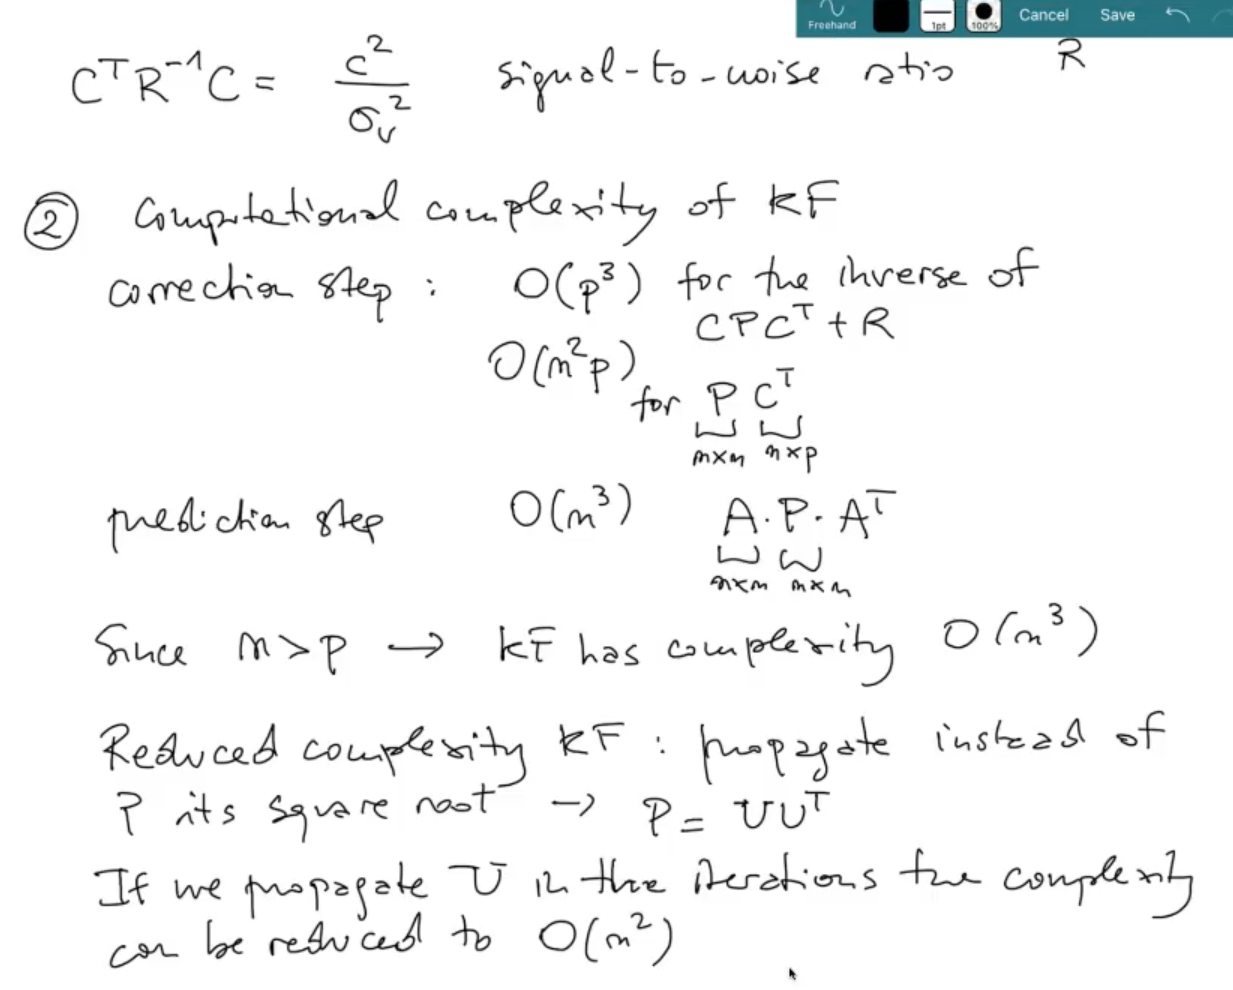 Freehand 1pt 100% Cancel Save
CᵀR⁻¹C = c²/σᵥ² signal-to-noise ratio R
② Computational complexity of KF
correction step : O(p³) for the inverse of
CPCᵀ + R
O(n²p)
for P Cᵀ
n×n n×p
prediction step O(n³) A·P·Aᵀ
n×n n×n
Since n>p → KF has complexity O(n³)
Reduced complexity KF : propagate instead of
P its square root → P = UUᵀ
If we propagate U in the iterations the complexity
can be reduced to O(n²)